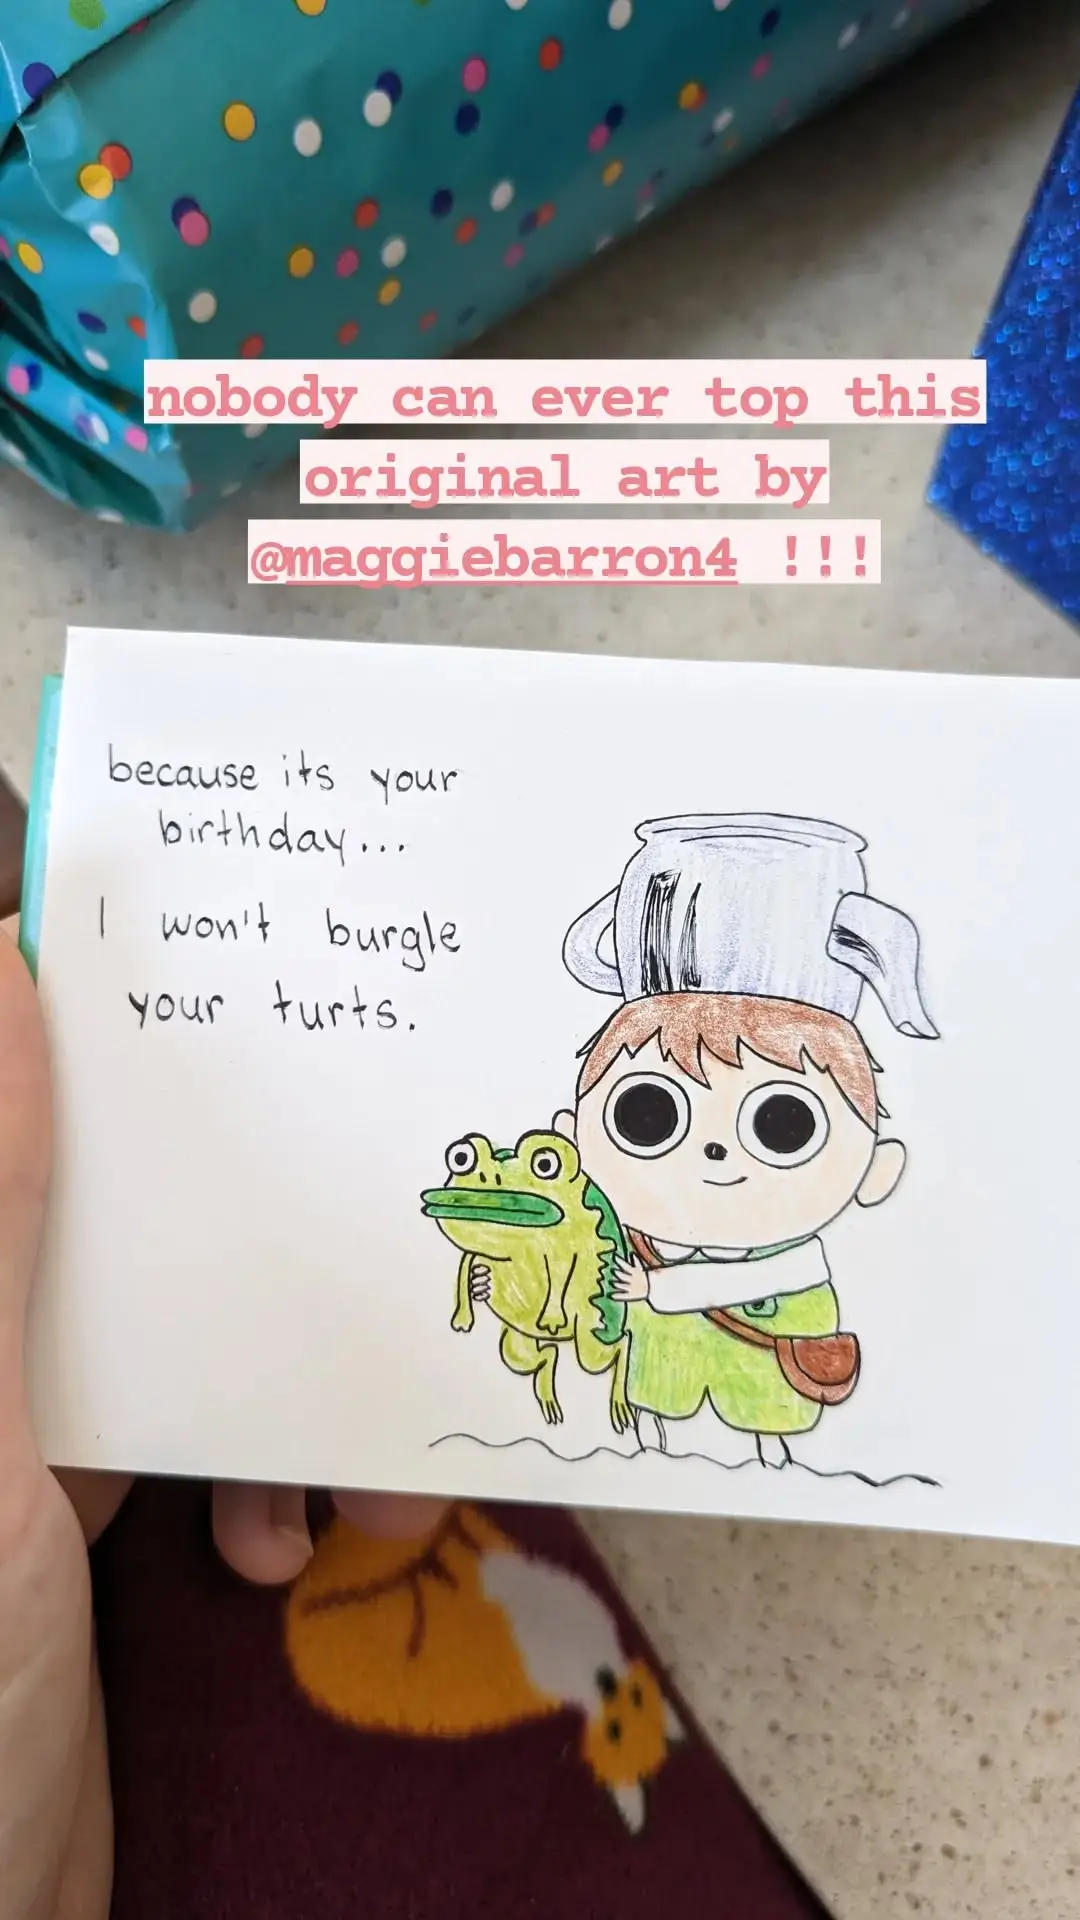 nobody can ever top this
original art by
@maggiebarron4 !!!
because its your
birthday...
I won't burgle
your turts.